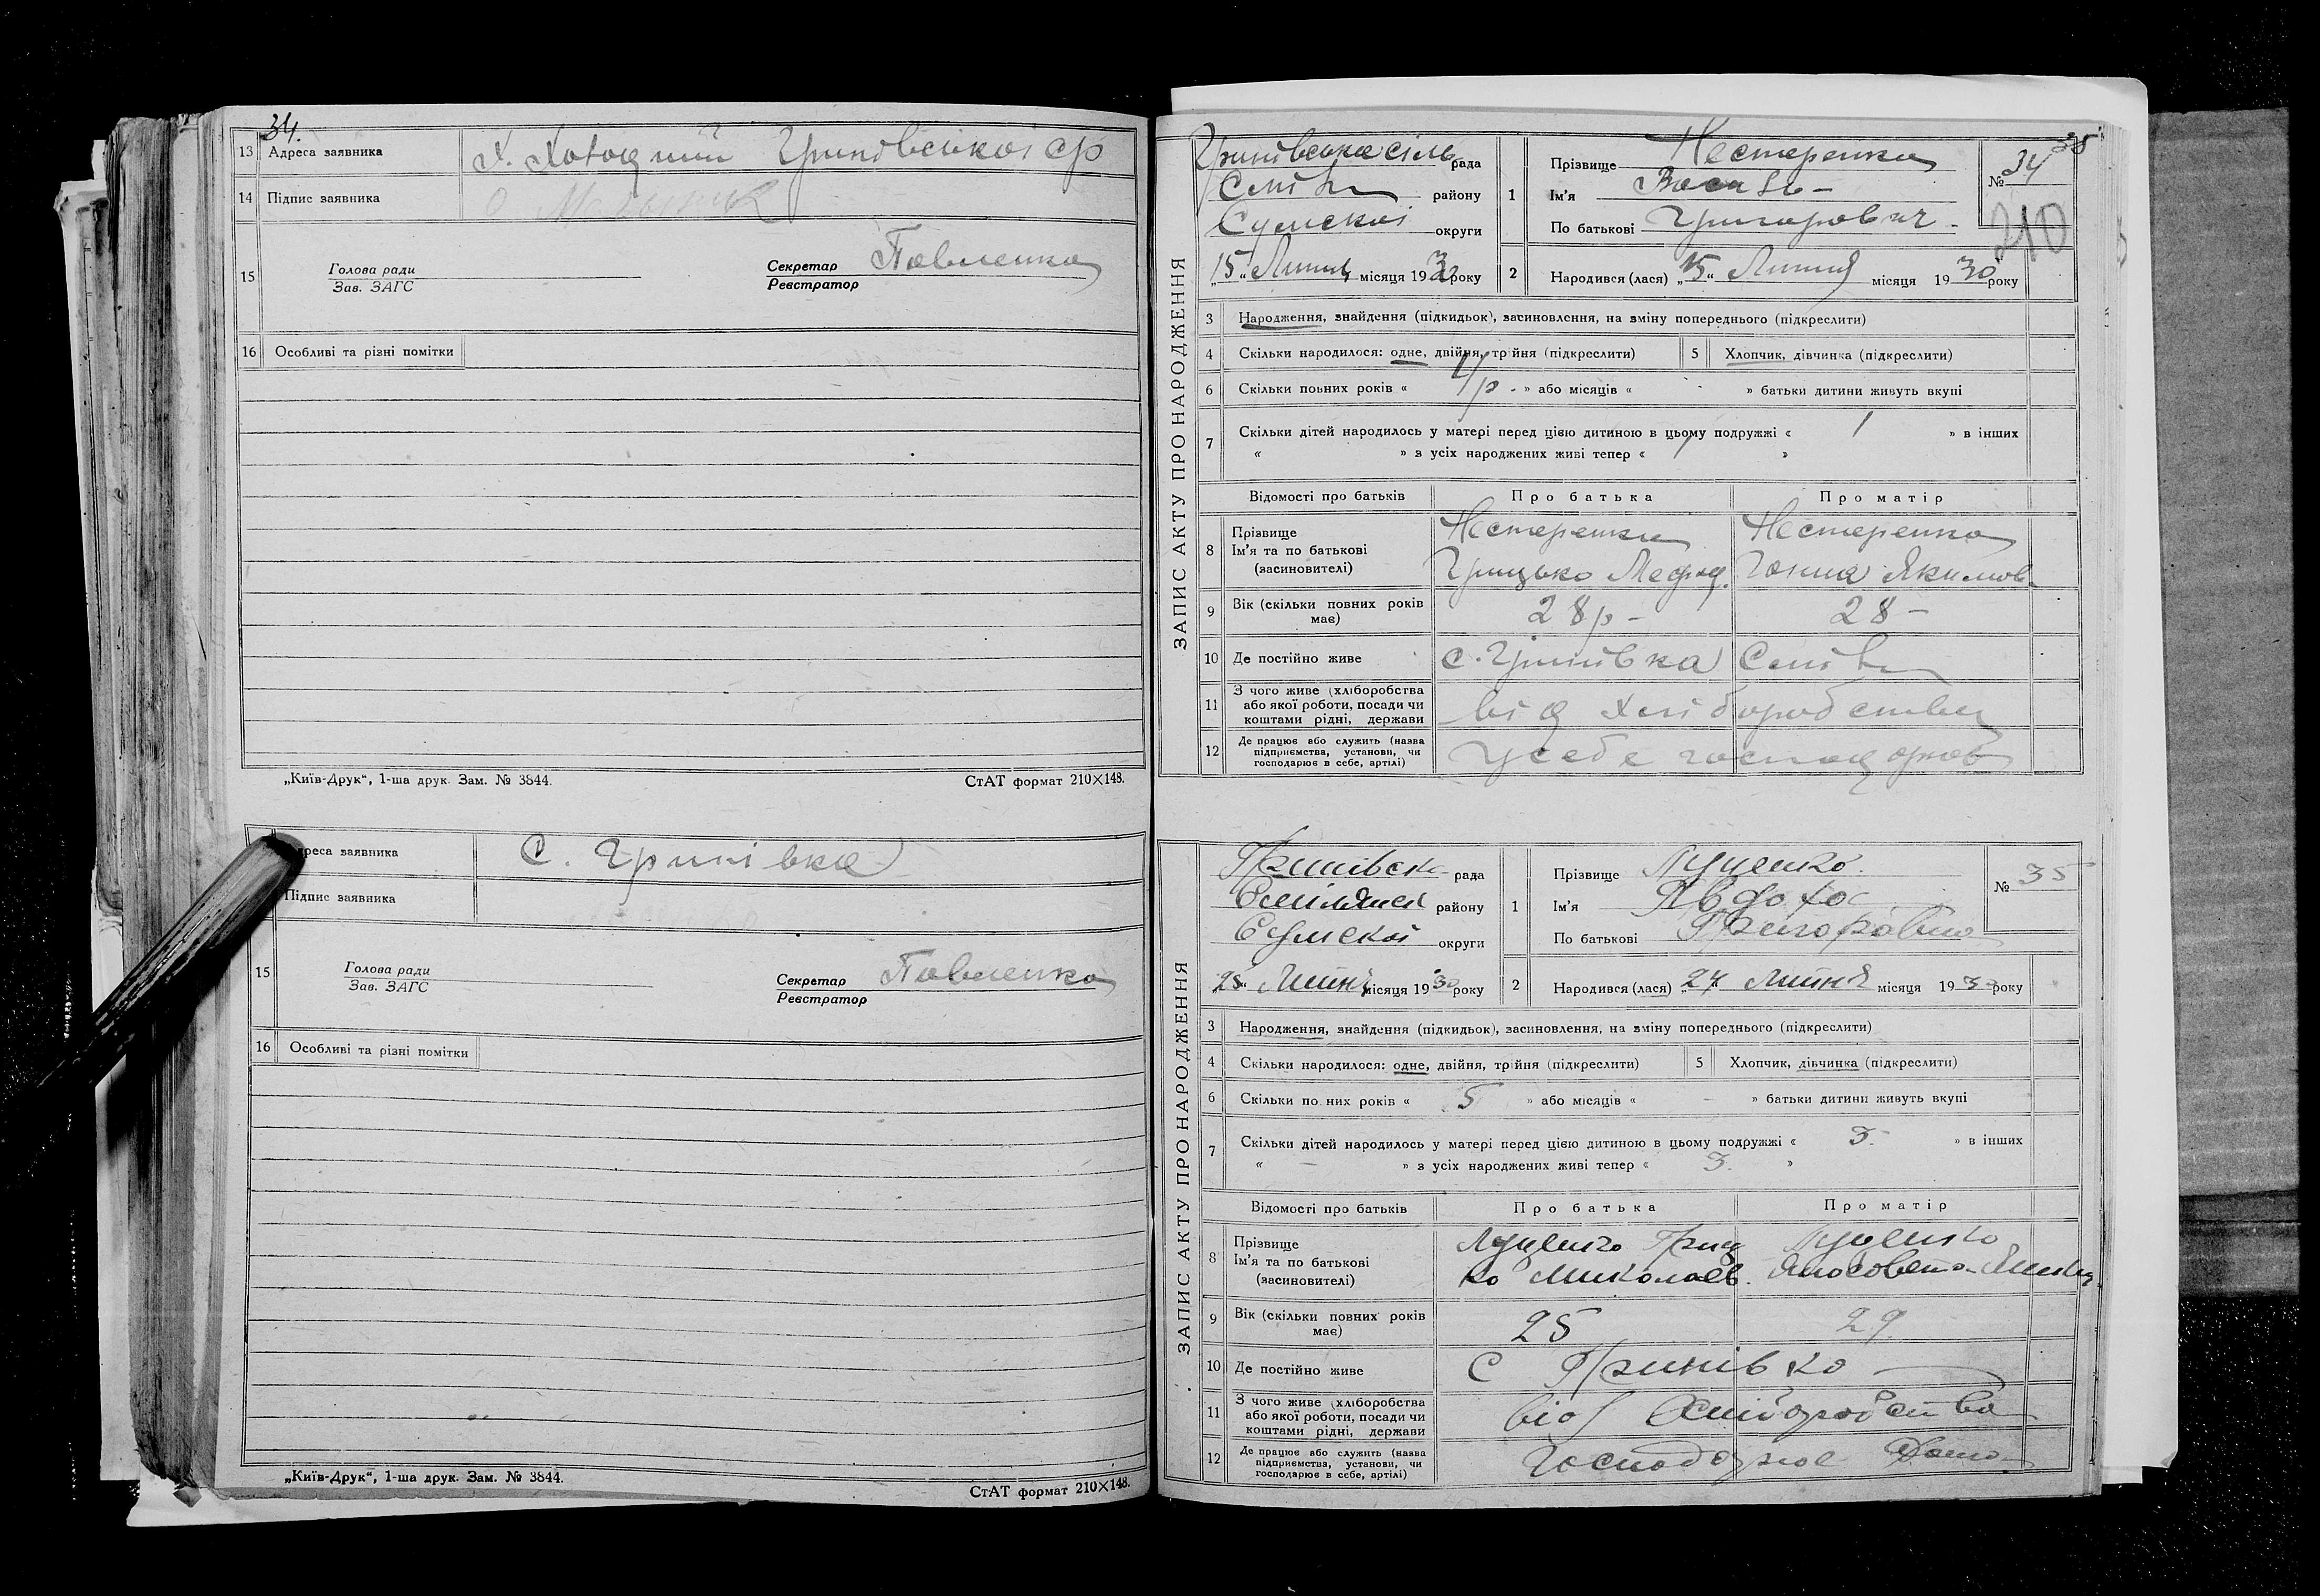 34.
13 Адреса заявника Х. Хотяциий Гринівської ср
14 Підпис заявника
15 Голова ради
Зав. ЗАГС
Секретар Павленко
Реєстратор
16 Особливі та різні помітки
„Київ-Друк“, 1-ша друк. Зам. № 3844.
СтАТ формат 210×148.
Адреса заявника С. Гринівка
Підпис заявника
15 Голова ради
Зав. ЗАГС
Секретар Павленко
Реєстратор
16 Особливі та різні помітки
„Київ-Друк“, 1-ша друк. Зам. № 3844.
СтАТ формат 210×148.
35
ЗАПИС АКТУ ПРО НАРОДЖЕННЯ
Гринівська сіль рада
району
Сумської округи
„15“ Липня місяця 1930 року
1 Прізвище Нестеренко
Ім'я Василь
По батькові Григорович
№ 34
210
2 Народився (лася) „15“ Липня місяця 1930 року
3 Народження, знайдення (підкидьок), засиновлення, на зміну попереднього (підкреслити)
4 Скільки народилося: одне, двійня, трійня (підкреслити)
5 Хлопчик, дівчинка (підкреслити)
6 Скільки повних років « 4/р - » або місяців « - » батьки дитини живуть вкупі
7 Скільки дітей народилось у матері перед цією дитиною в цьому подружжі « 1 » в інших
« » з усіх народжених живі тепер « 1 »
Відомості про батьків Про батька Про матір
8 Прізвище Нестеренко Нестеренко
Ім'я та по батькові
(засиновителі) Грицько Мефод. Ганна Якимов.
9 Вік (скільки повних років має) 28р - 28 -
10 Де постійно живе с. Гринівка
11 З чого живе (хліборобства
або якої роботи, посади чи
коштами рідні, держави від хліборобства
12 Де працює або служить (назва
підприємства, установи, чи
господарює в себе, артілі) у себе господарюв
ЗАПИС АКТУ ПРО НАРОДЖЕННЯ
Гринівська рада
району
Сумської округи
„25“ Липня місяця 1930 року
1 Прізвище Луценко
Ім'я Явдоха
По батькові Григоровна
№ 35
2 Народився (лася) „24“ Липня місяця 1930 року
3 Народження, знайдення (підкидьок), засиновлення, на зміну попереднього (підкреслити)
4 Скільки народилося: одне, двійня, трійня (підкреслити)
5 Хлопчик, дівчинка (підкреслити)
6 Скільки повних років « 5 » або місяців « - » батьки дитини живуть вкупі
7 Скільки дітей народилось у матері перед цією дитиною в цьому подружжі « 3. » в інших
« - » з усіх народжених живі тепер « 3. »
Відомості про батьків Про батька Про матір
8 Прізвище Луценко Гриць Луценко
Ім'я та по батькові ко Миколаєв.
(засиновителі)
9 Вік (скільки повних років має) 25 29
10 Де постійно живе С Гринівко
11 З чого живе (хліборобства
або якої роботи, посади чи
коштами рідні, держави від хліборобства
12 Де працює або служить (назва
підприємства, установи, чи
господарює в себе, артілі) Господарює Дома